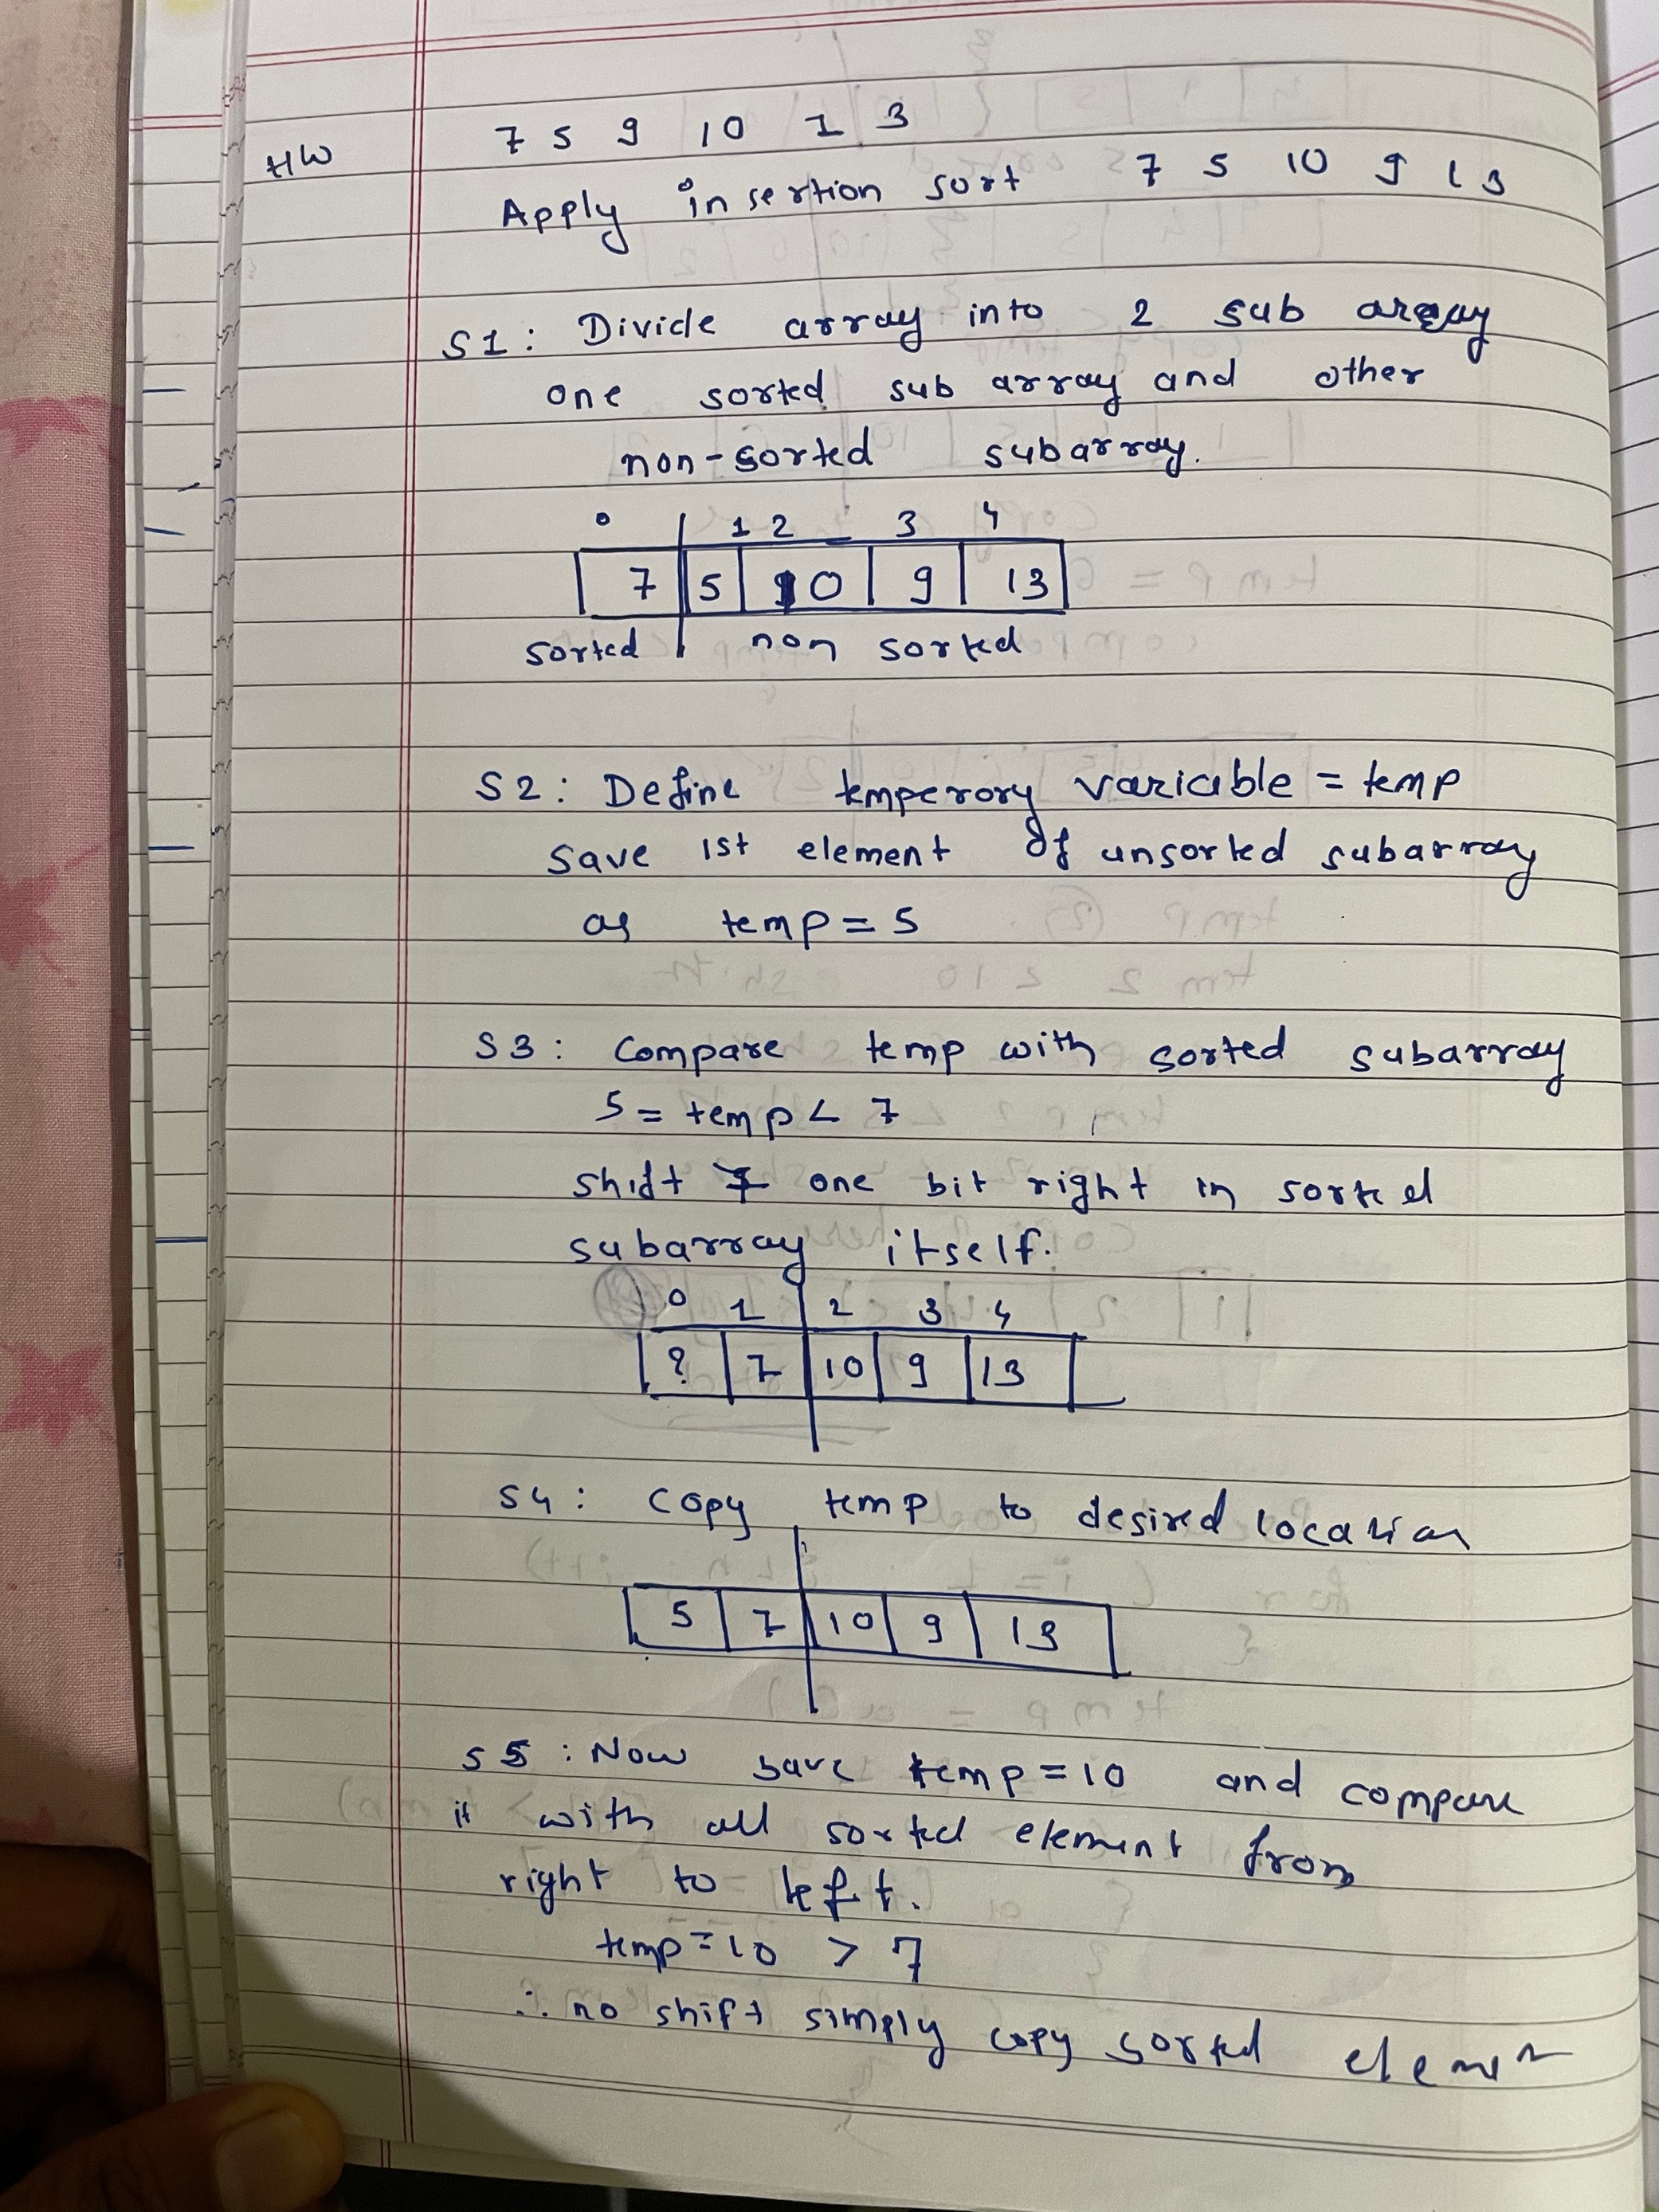 HW
7 5 9 10 1 3
Apply insertion sort 7 5 10 9 13
S1: Divide array into 2 sub array
one sorted sub array and other
non-sorted subarray.
0 1 2 3 4
7 5 10 9 13
sorted non sorted
S2: Define temperory variable = temp
save 1st element of unsorted subarray
as temp = 5
S3: Compare temp with sorted subarray
5 = temp < 7
shift 7 one bit right in sorted
subarray itself.
0 1 2 3 4
? 7 10 9 13
S4: copy temp to desired location
5 7 10 9 13
S5: Now save temp = 10 and compare
it with all sorted element from
right to left.
temp = 10 > 7
∴ no shift simply copy sorted element